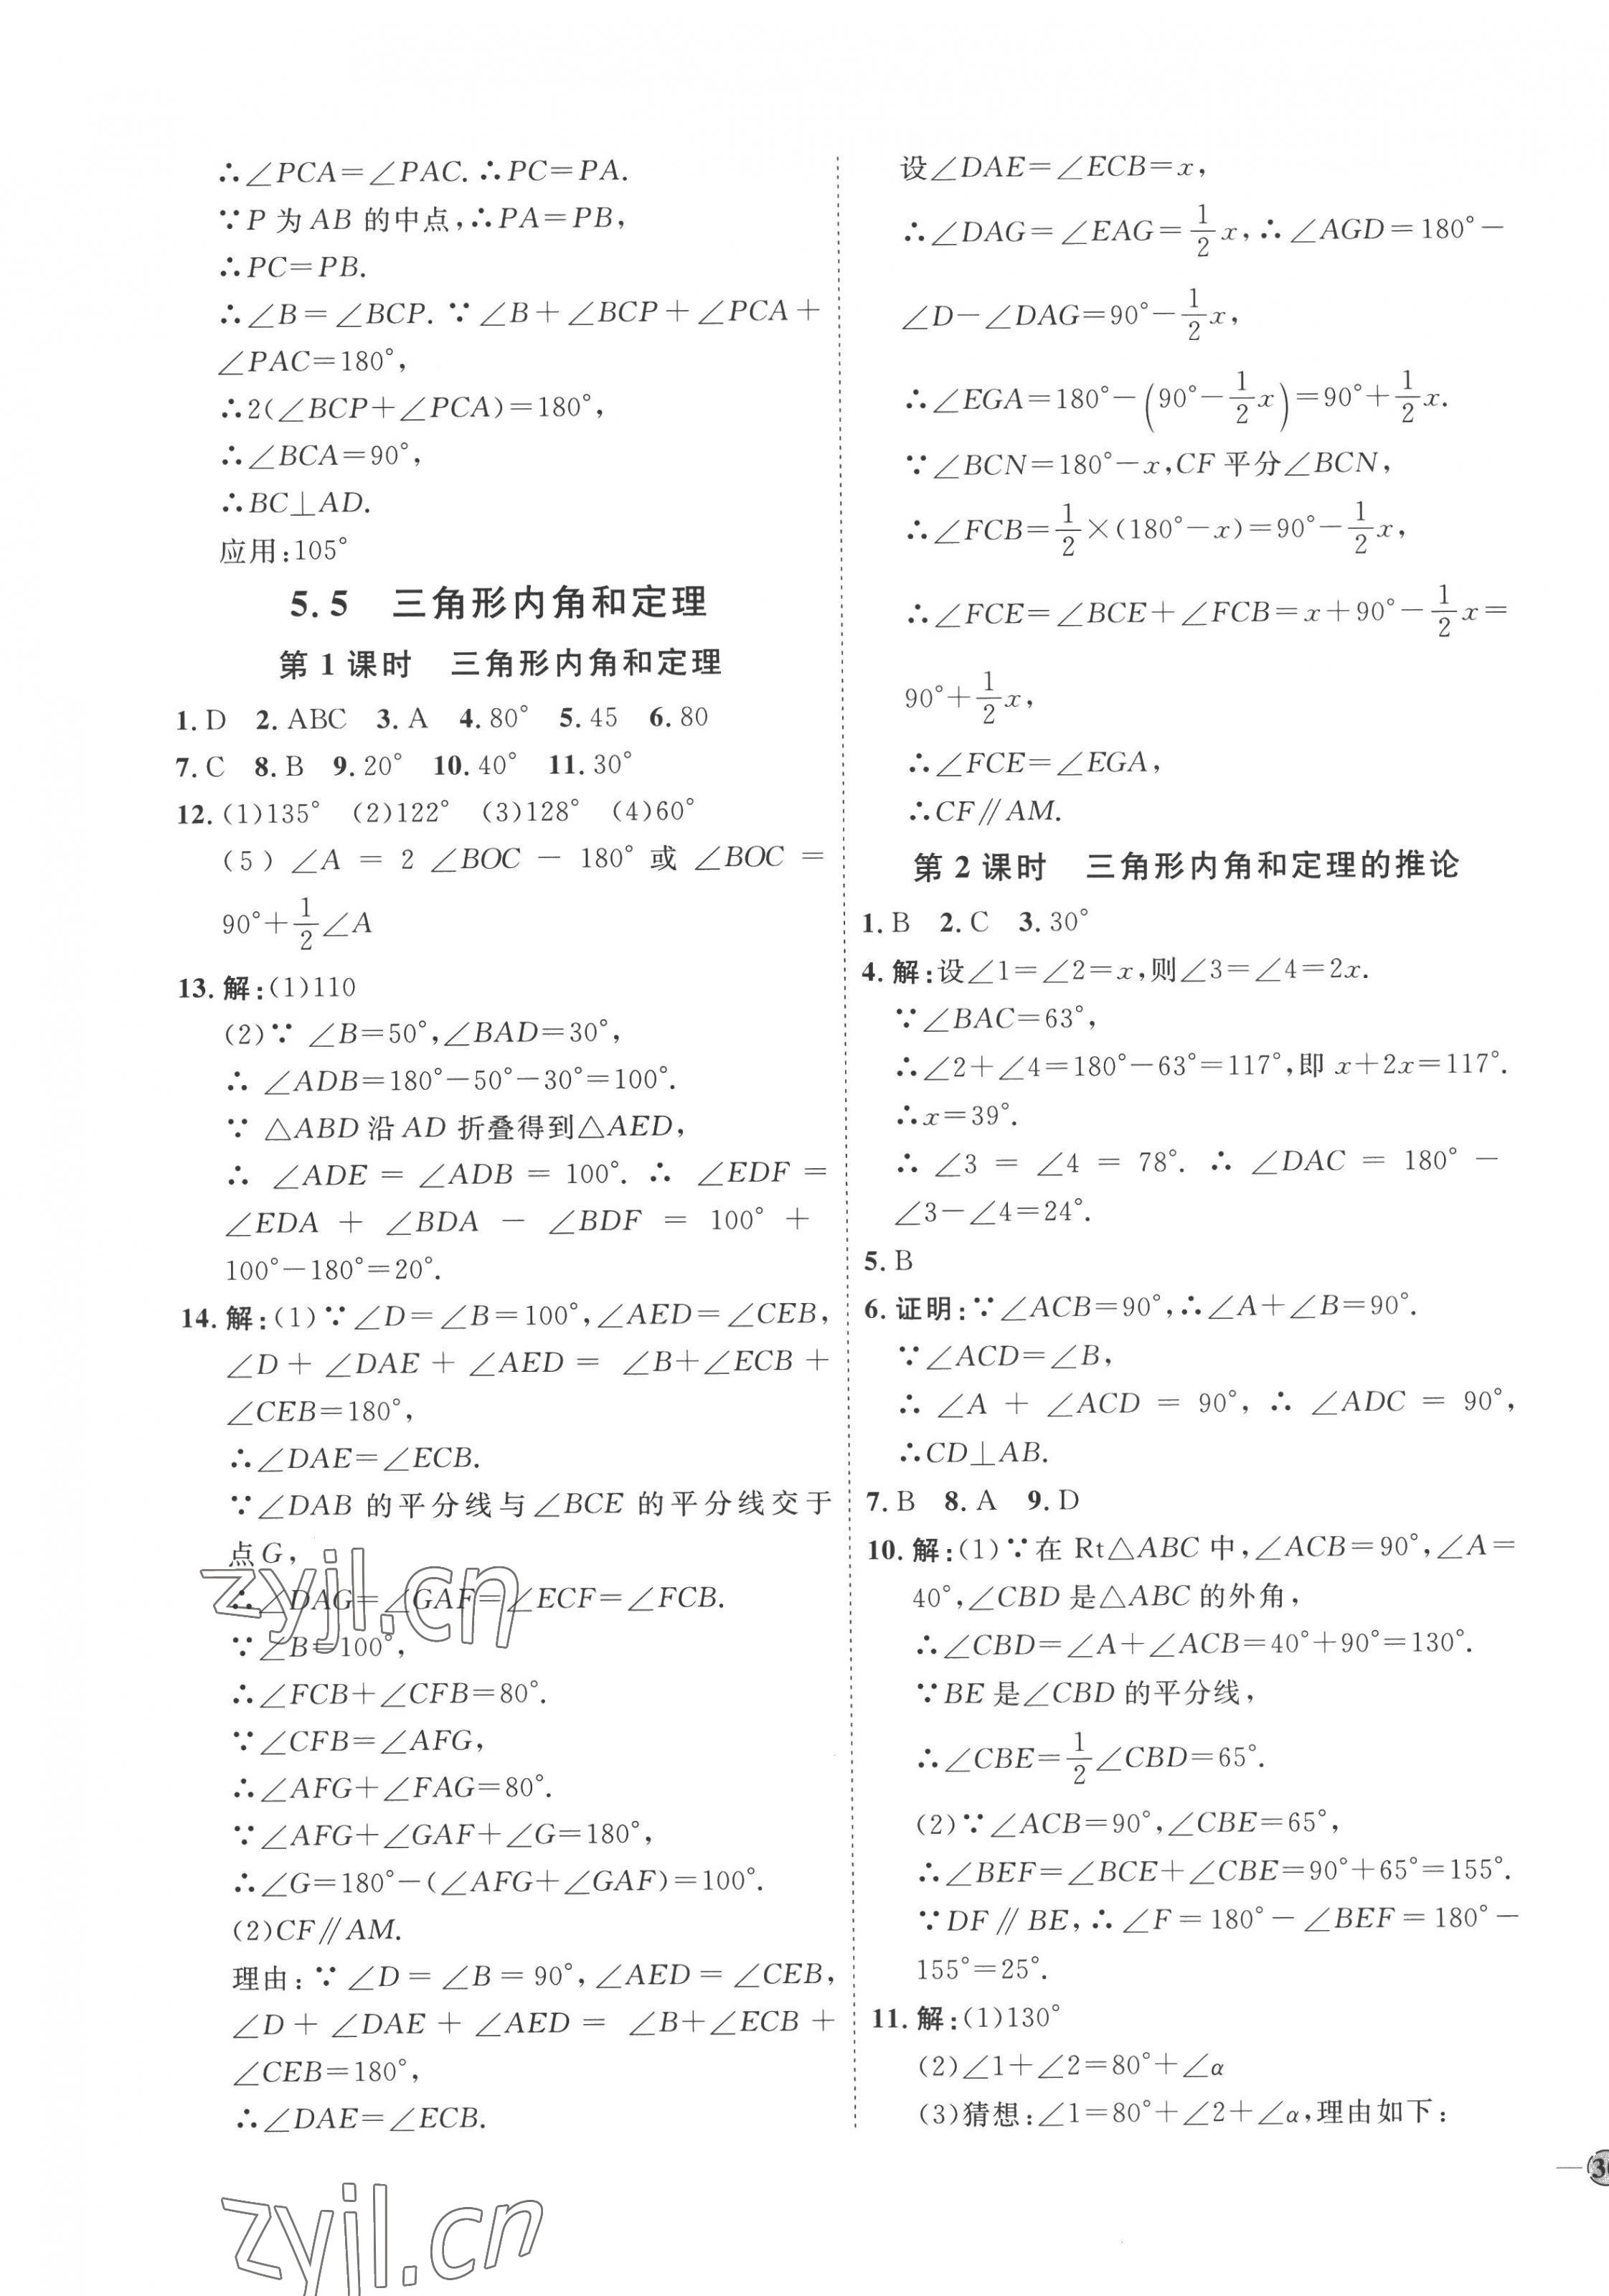 ∴∠PCA=∠PAC.∴PC=PA.
∵P 为 AB 的中点,∴PA=PB,
∴PC=PB.
∴∠B=∠BCP.∵∠B+∠BCP+∠PCA+
∠PAC=180°,
∴2(∠BCP+∠PCA)=180°,
∴∠BCA=90°,
∴BC⊥AD.
应用:105°
5.5 三角形内角和定理
第 1 课时 三角形内角和定理
1.D 2.ABC 3.A 4.80° 5.45 6.80
7.C 8.B 9.20° 10.40° 11.30°
12.(1)135° (2)122° (3)128° (4)60°
(5)∠A = 2 ∠BOC - 180° 或 ∠BOC =
90°+1/2∠A
13.解:(1)110
(2)∵ ∠B=50°,∠BAD=30°,
∴ ∠ADB=180°-50°-30°=100°.
∵ △ABD 沿 AD 折叠得到△AED,
∴ ∠ADE = ∠ADB = 100°. ∴ ∠EDF =
∠EDA + ∠BDA - ∠BDF = 100° +
100°-180°=20°.
14.解:(1)∵∠D=∠B=100°,∠AED=∠CEB,
∠D+∠DAE+∠AED= ∠B+∠ECB+
∠CEB=180°,
∴∠DAE=∠ECB.
∵∠DAB 的平分线与∠BCE 的平分线交于
点G,
∴∠DAG=∠GAF=∠ECF=∠FCB.
∵∠B=100°,
∴∠FCB+∠CFB=80°.
∵∠CFB=∠AFG,
∴∠AFG+∠FAG=80°.
∵∠AFG+∠GAF+∠G=180°,
∴∠G=180°-(∠AFG+∠GAF)=100°.
(2)CF∥AM.
理由:∵∠D=∠B=90°,∠AED=∠CEB,
∠D+∠DAE+∠AED= ∠B+∠ECB+
∠CEB=180°,
∴∠DAE=∠ECB.
设∠DAE=∠ECB=x,
∴∠DAG=∠EAG=1/2x,∴∠AGD=180°-
∠D-∠DAG=90°-1/2x,
∴∠EGA=180°-(90°-1/2x)=90°+1/2x.
∵∠BCN=180°-x,CF 平分∠BCN,
∴∠FCB=1/2×(180°-x)=90°-1/2x,
∴∠FCE=∠BCE+∠FCB=x+90°-1/2x=
90°+1/2x,
∴∠FCE=∠EGA,
∴CF∥AM.
第 2 课时 三角形内角和定理的推论
1.B 2.C 3.30°
4.解:设∠1=∠2=x,则∠3=∠4=2x.
∵∠BAC=63°,
∴∠2+∠4=180°-63°=117°,即 x+2x=117°.
∴x=39°.
∴ ∠3 = ∠4 = 78°. ∴ ∠DAC = 180° -
∠3-∠4=24°.
5.B
6.证明:∵∠ACB=90°,∴∠A+∠B=90°.
∵∠ACD=∠B,
∴ ∠A + ∠ACD = 90°, ∴ ∠ADC = 90°,
∴CD⊥AB.
7.B 8.A 9.D
10.解:(1)∵在 Rt△ABC 中,∠ACB=90°,∠A=
40°,∠CBD 是△ABC 的外角,
∴∠CBD=∠A+∠ACB=40°+90°=130°.
∵BE 是∠CBD 的平分线,
∴∠CBE=1/2∠CBD=65°.
(2)∵∠ACB=90°,∠CBE=65°,
∴∠BEF=∠BCE+∠CBE=90°+65°=155°.
∵DF∥BE,∴∠F=180°-∠BEF=180°-
155°=25°.
11.解:(1)130°
(2)∠1+∠2=80°+∠α
(3)猜想:∠1=80°+∠2+∠α,理由如下:
zyjl.cn
zyjl.cn